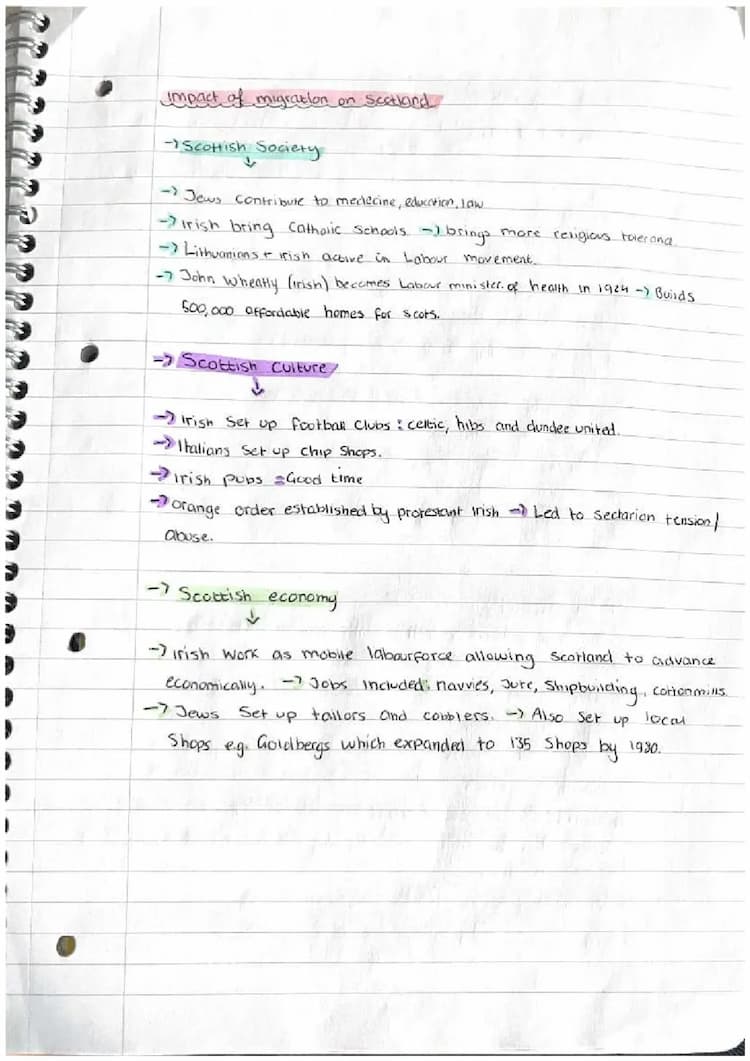 Impact of migration on Scotland
→ Scottish Society
↓
→ Jews contribute to medecine, education, law
→ Irish bring Catholic Schools → brings more religious tolerance
→ Lithuanians + Irish active in Labour movement.
→ John Wheatly (Irish) becomes Labour minister of health in 1924 → Builds
500,000 affordable homes for scots.
→ Scottish culture
↓
→ Irish set up football clubs: celtic, hibs and dundee united.
→ Italians set up chip shops.
→ Irish pubs = Good time
→ Orange order established by protestant Irish → Led to sectarian tension/
abuse.
→ Scottish economy
↓
→ Irish work as mobile labourforce allowing Scotland to advance
economically. → Jobs included: navvies, Jute, Shipbuilding, cottonmills
→ Jews set up tailors and cobblers. → Also set up local
Shops e.g. Goldbergs which expanded to 135 shops by 1930.